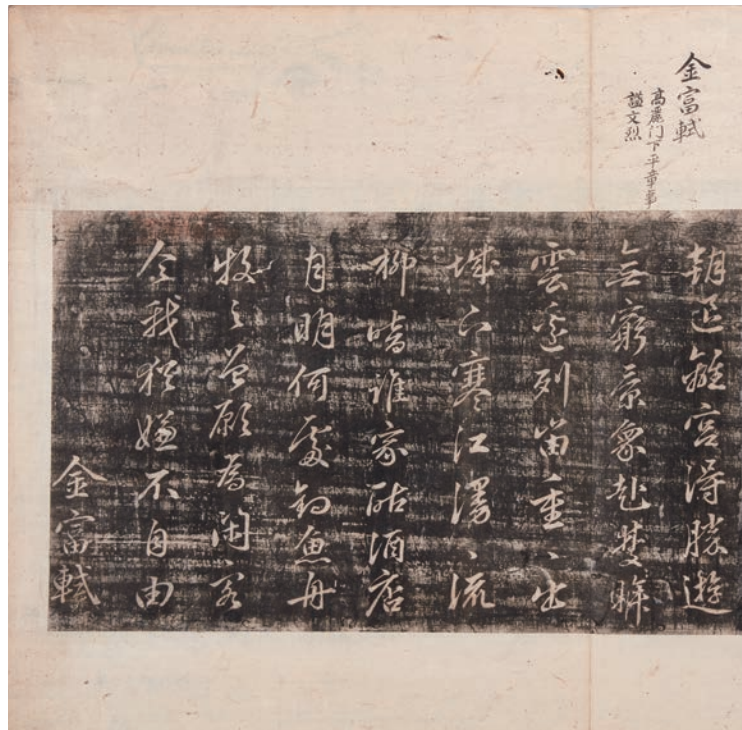 金富軾
高麗门下平章事
謚文烈
朝退離宮得勝遊
無窮景象赴雙眸
雲邊列岫重〻出
城下寒江漫〻流
柳暗誰家酤酒店
月明何處釣魚舟
牧之曾願為閑客
今我猶嫌不自由
金富軾